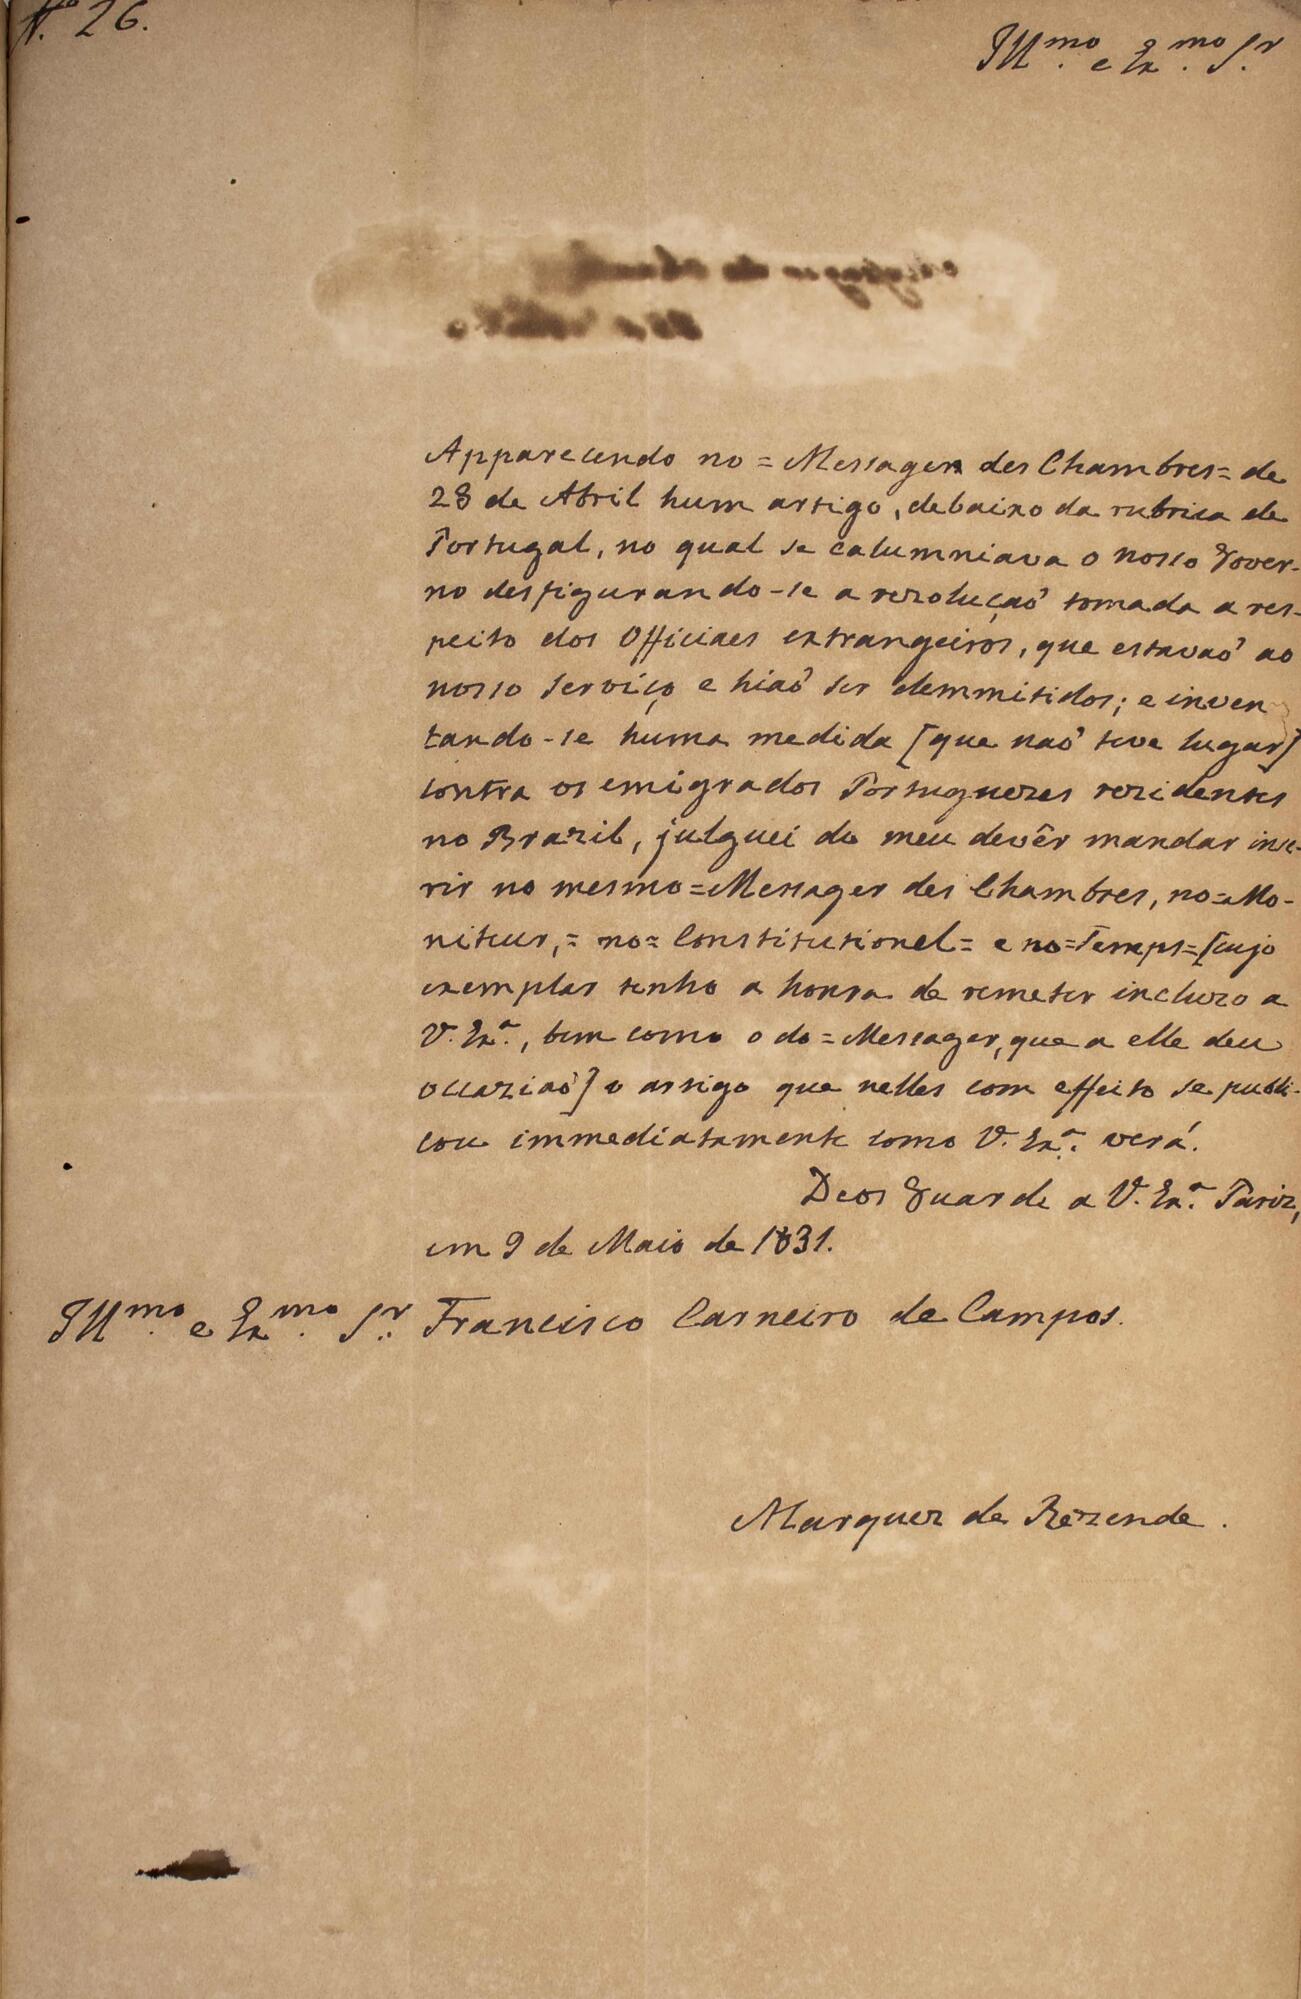 N.º 26.
Ill.mo e Ex.mo S.r
Apparecendo no = Messager des Chambres = de
28 de Abril hum artigo, debaixo da rubrica de
Portugal, no qual se calumniava o nosso Gover-
no desfigurando-se a rezoluçaõ tomada a res-
peito dos Officiaes extrangeiros, que estavaõ ao
nosso serviço e hiaõ ser demmitidos; e inven
tando-se huma medida [que naõ teve lugar]
contra os emigrados Portuguezes rezidentes
no Brazil, julguei do meu devêr mandar inse-
rir no mesmo = Messager des Chambres, no = Mo-
niteur, = no = Constitutionel = e no = Temps = [cujo
exemplar tenho a honra de remeter incluzo a
V. Ex.ª, bem como o do = Messager, que a elle deu
occaziaõ] o artigo que nelles com effeito se publi-
cou immediatamente como V. Ex.ª verá.
Deos Guarde a V. Ex.ª Pariz,
em 9 de Maio de 1831.
Ill.mo e Ex.mo S.r Francisco Carneiro de Campos.
Marquez de Rezende.